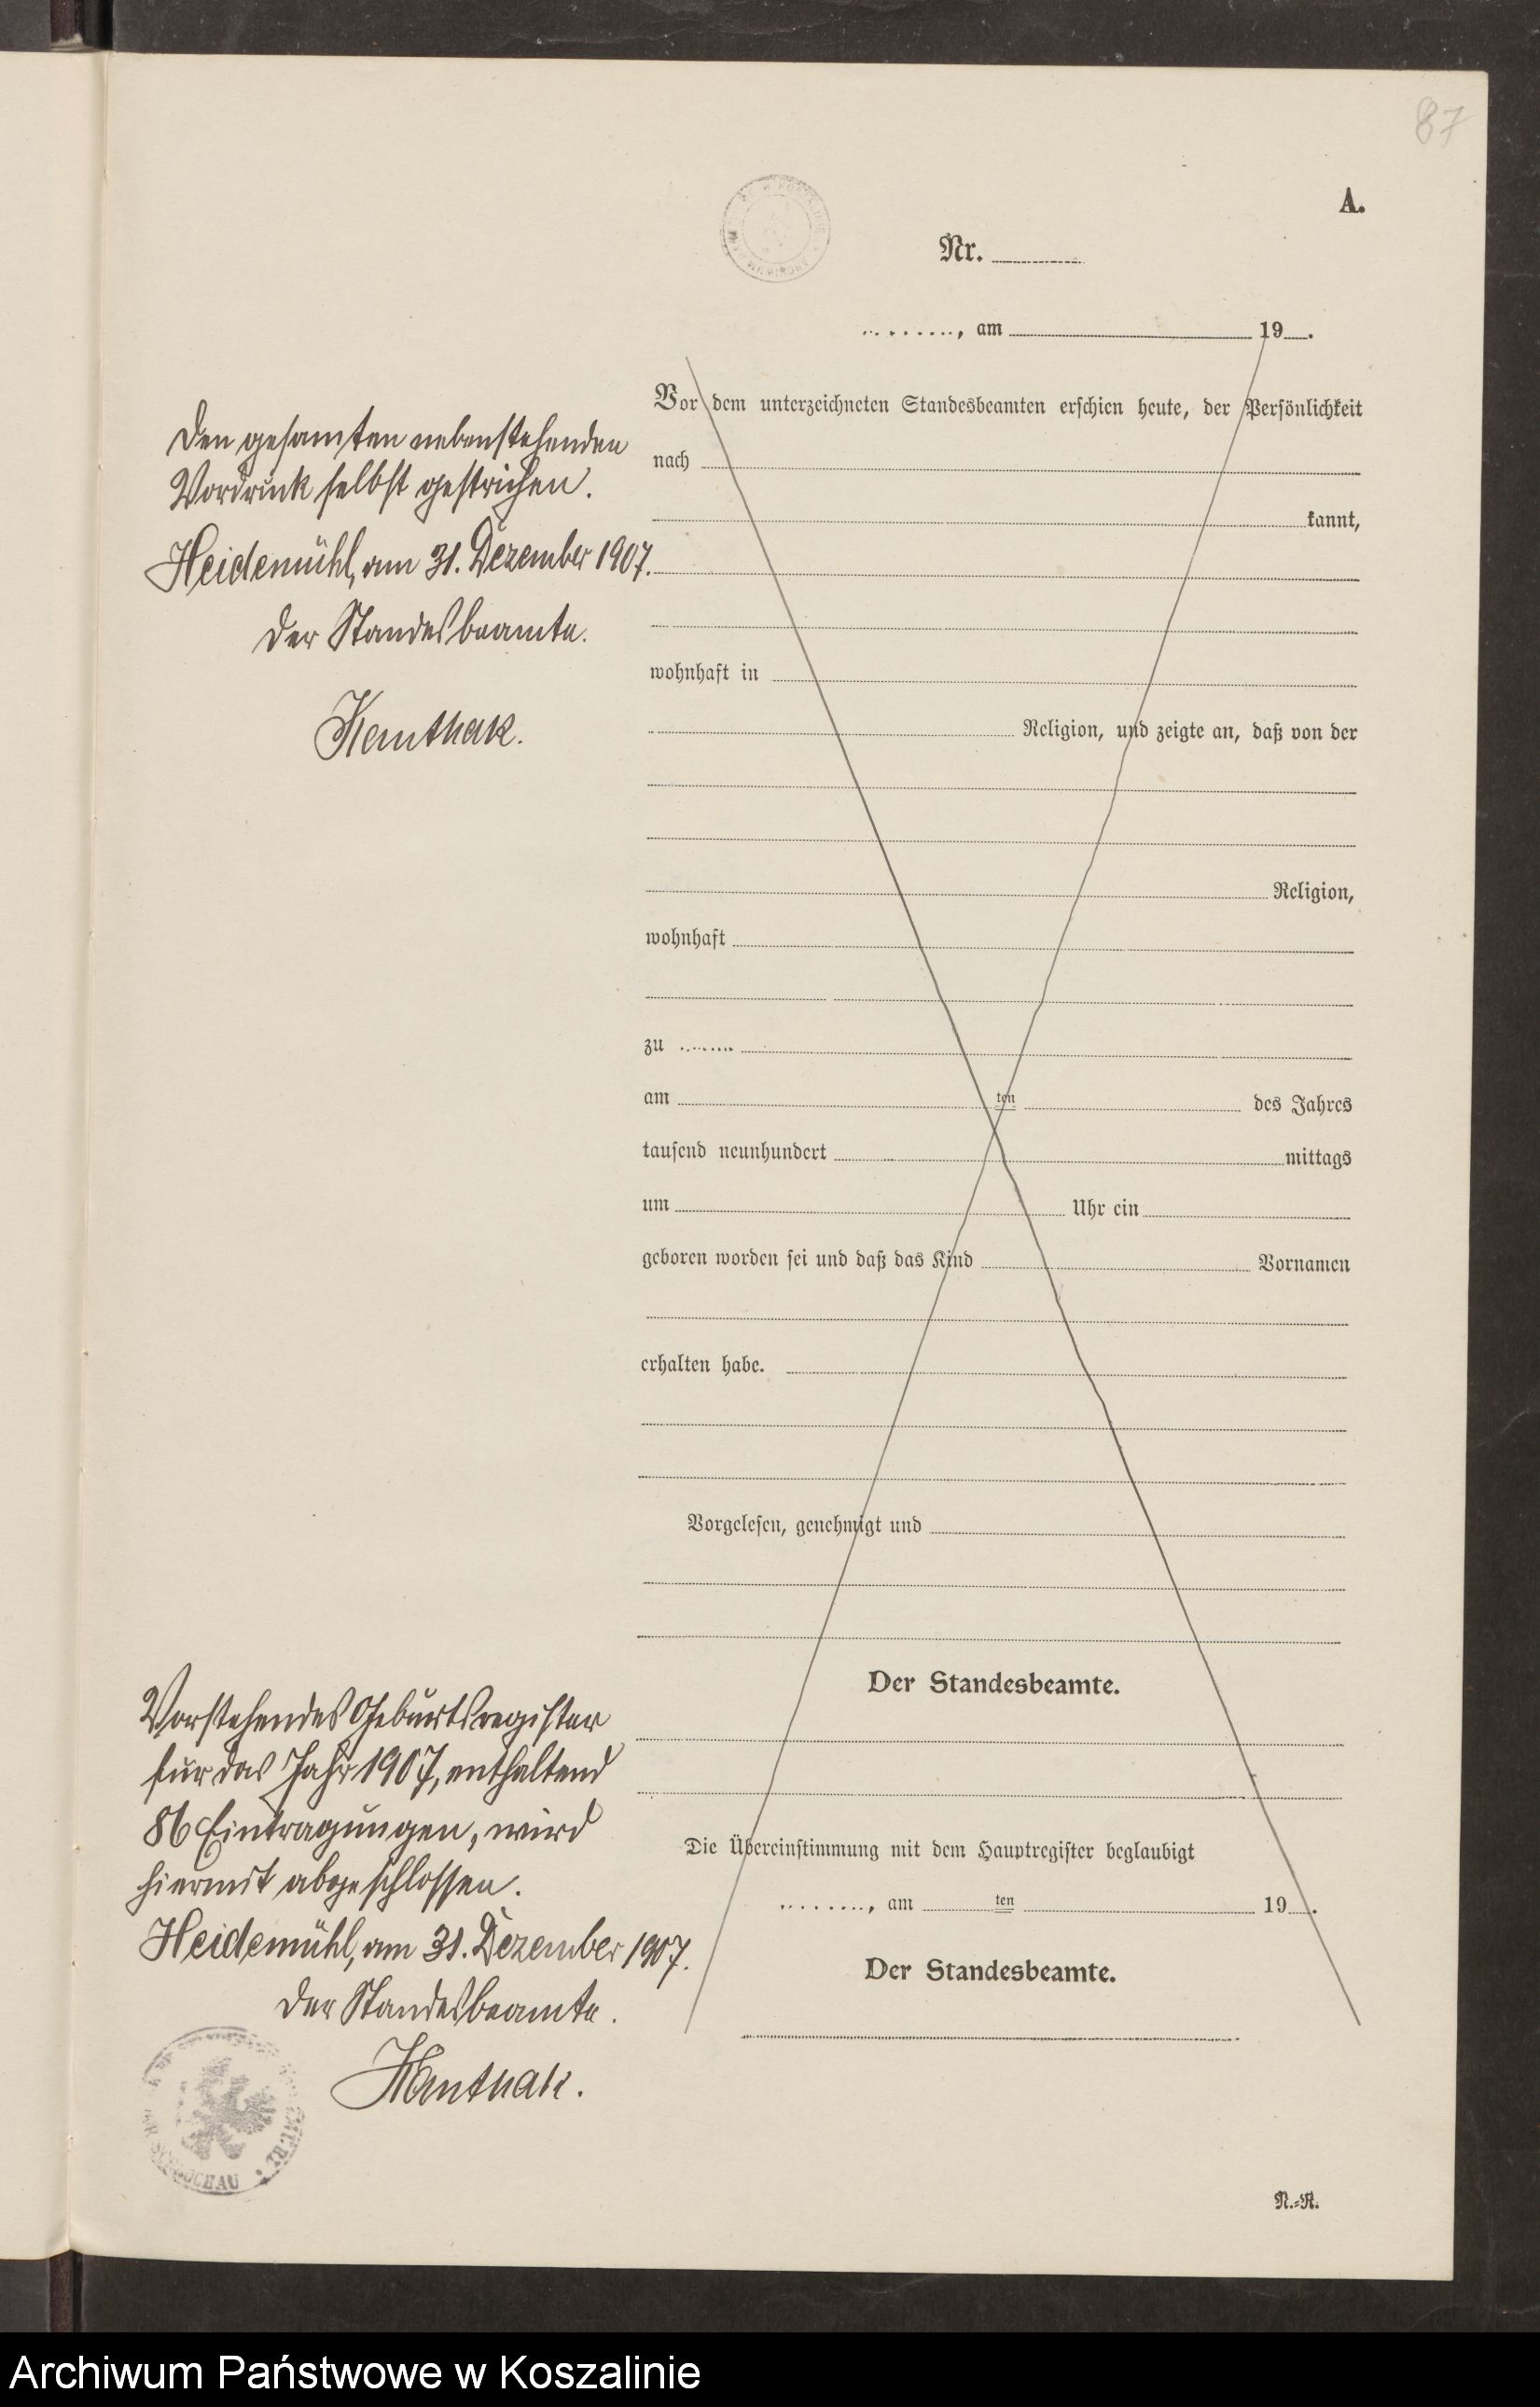 87
A.
Nr.
, am 19 .
Vor dem unterzeichneten Standesbeamten erschien heute, der Persönlichkeit
nach
kannt,
wohnhaft in
Religion, und zeigte an, daß von der
Religion,
wohnhaft
zu
am ten des Jahres
tausend neunhundert mittags
um Uhr ein
geboren worden sei und daß das Kind Vornamen
erhalten habe.
Vorgelesen, genehmigt und
Der Standesbeamte.
Die Übereinstimmung mit dem Hauptregister beglaubigt
, am ten 19 .
Der Standesbeamte.
N.=R.
Den gesamten nebenstehenden
Vordruck selbst gestrichen.
Heidemühl, am 31. Dezember 1907.
Der Standesbeamte.
Vorstehendes Geburtsregister
für das Jahr 1907, enthaltend
86 Eintragungen, wird
hiermit abgeschlossen.
Heidemühl, am 31. Dezember 1907.
Der Standesbeamte.
SCHLOCHAU
Archiwum Państwowe w Koszalinie